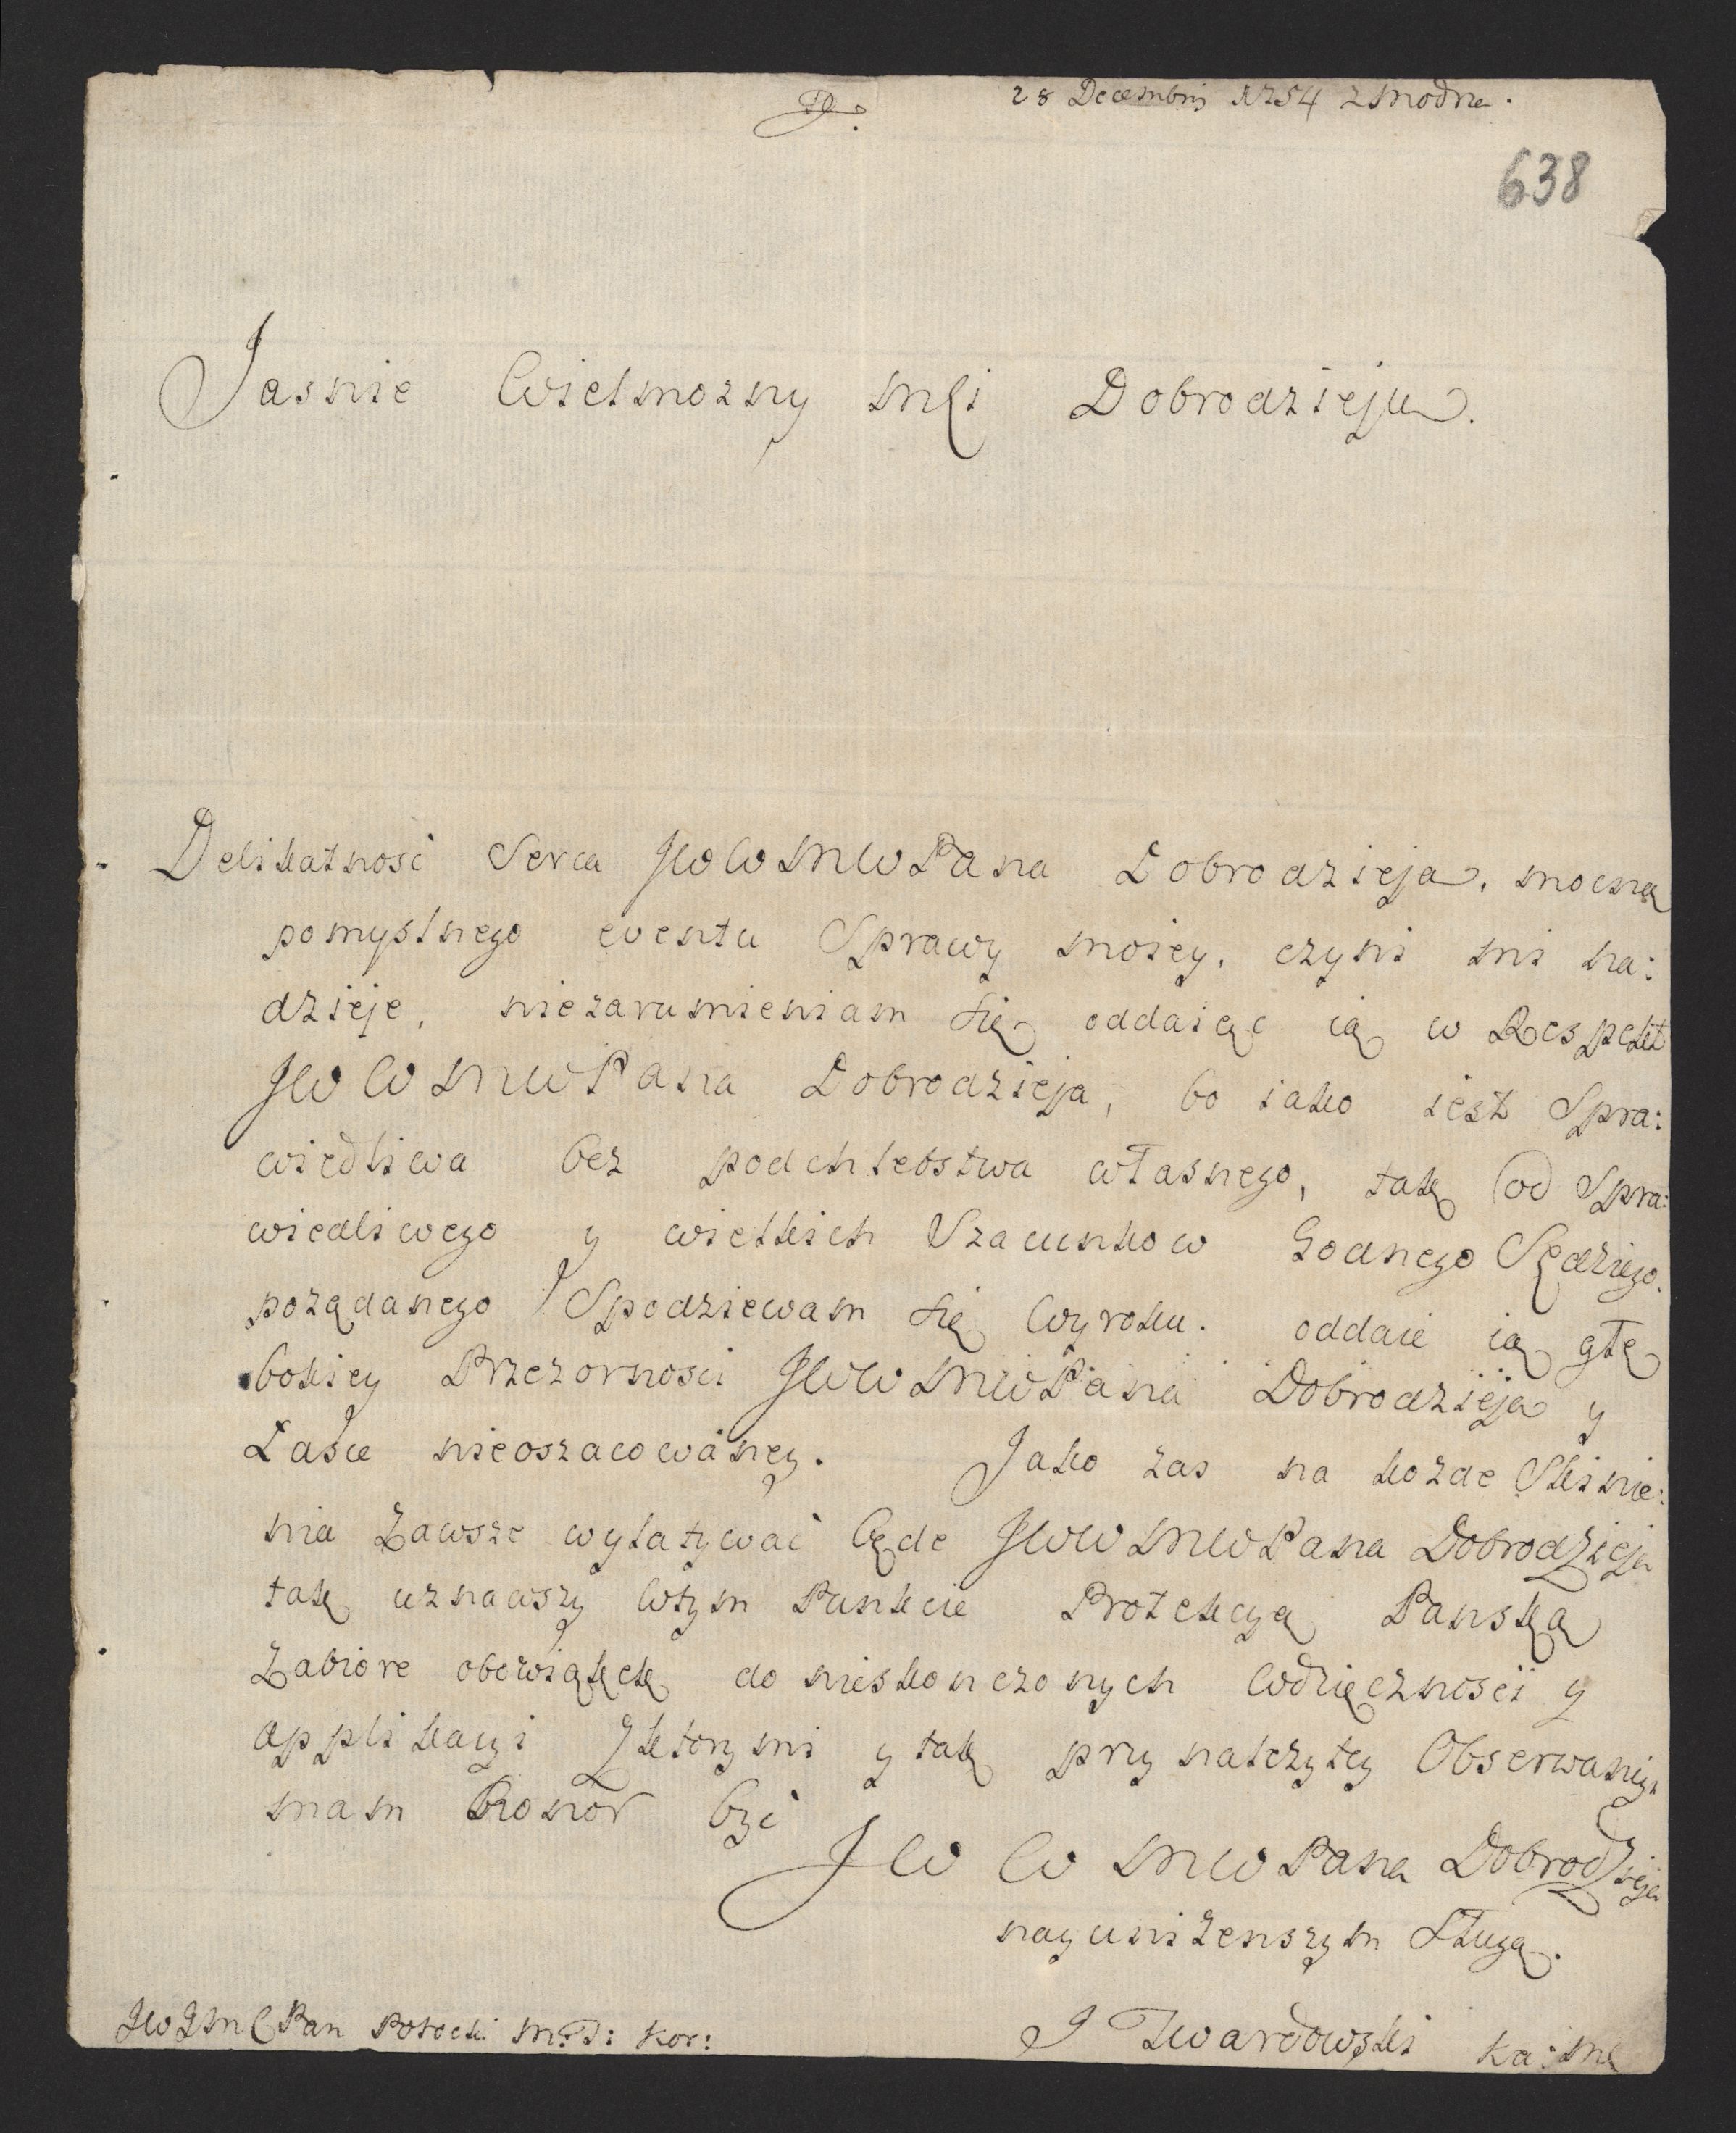 28 Decembris 1754 z Modne.
638
Jasnie Wielmozny Mći Dobrodzieju.
Delikatnosć Serca JWWMWPana Dobrodzieja, mocną
pomyslnego eventu Sprawy moiey, czyni mi na:
dzieje, niezarumieniam się oddaiąc ią w Respekt
JWWMWPana Dobrodzieja, bo iako iest Spra:
wiedliwa bez podchlebstwa własnego, tak od Spra:
wiedliwego y wielkich Szacunkow Godnego Sędziego.
poządanego Spodziewam się Wyroku. oddaie ią głę
bokiey Przezornosci JWWMWPana Dobrodzieja y
Łasce nieoszacowaney. Jako zas na kozde Skinie:
nia Zawsze wylatywać będe JWWMWPana Dobrodzieja
tak uznawszy Wtym Punkcie Protekcyą Panską
Zabiore obowiązek do nieskonczonych Wdzięcznosci y
applikacyi Zktorymi y tak przy nalezytey Obserwancyi
mam Honor być
JWWMWPana Dobrodzieja
nayunizenszym Sługą.
J Twardowski Ka: Mć
JWJMCPan Potocki M: Kor: